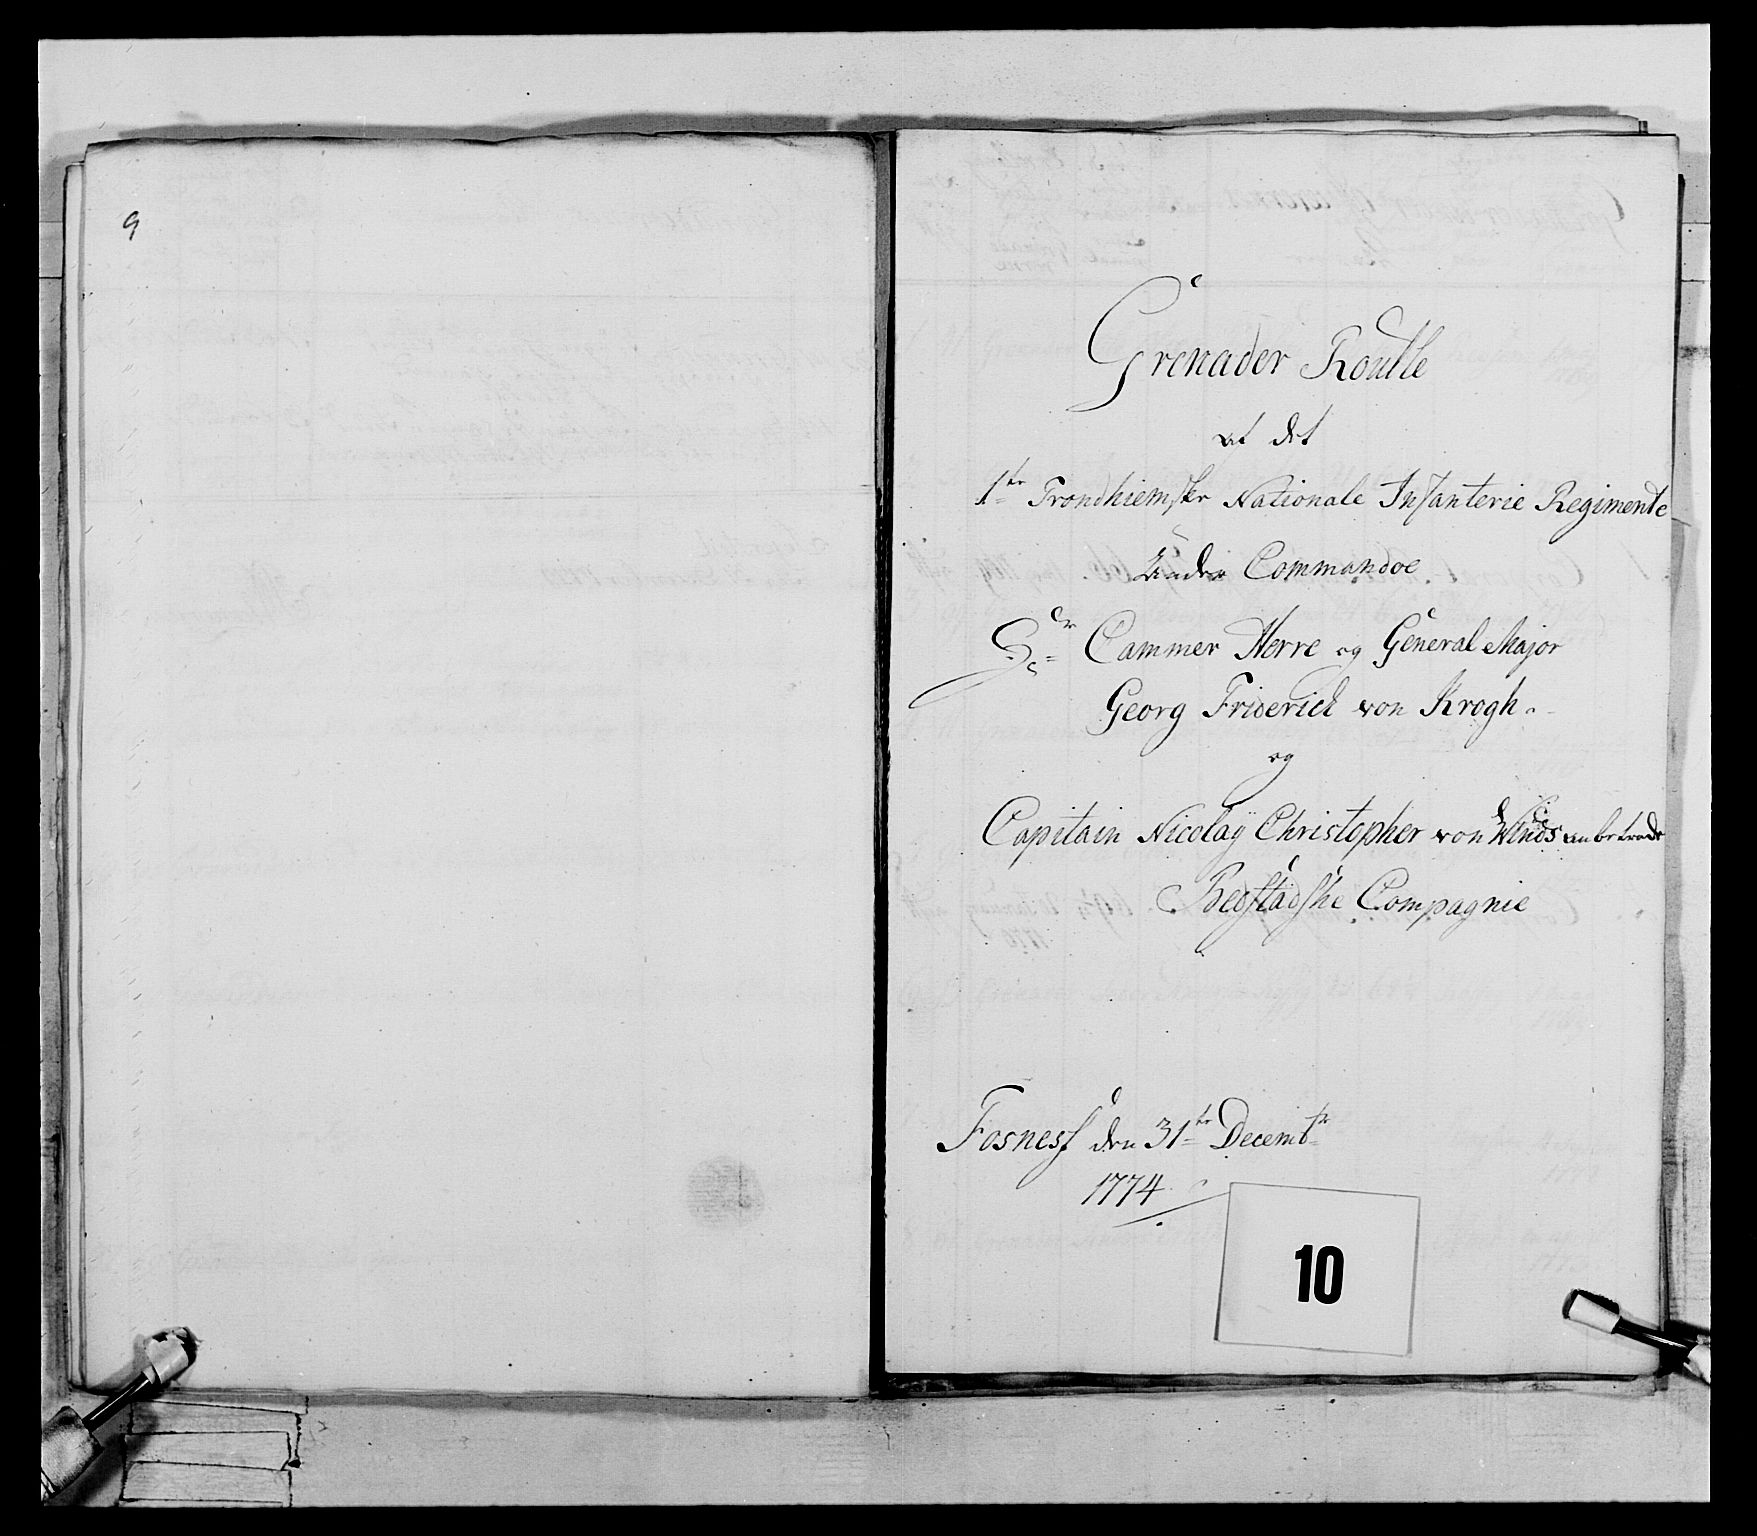 9
Grenader Roulle
af det
1ste Trondhiemske Nationale Infanterie Regimente
Under Commandoe
Hr Cammer Herre og General Major
Georg Friderich von Krogh.
og
Capitain Nicolaÿ Christopher von anbetrode
Bedstadske Compagnie
Fosness den 31te Decembr
1774
10